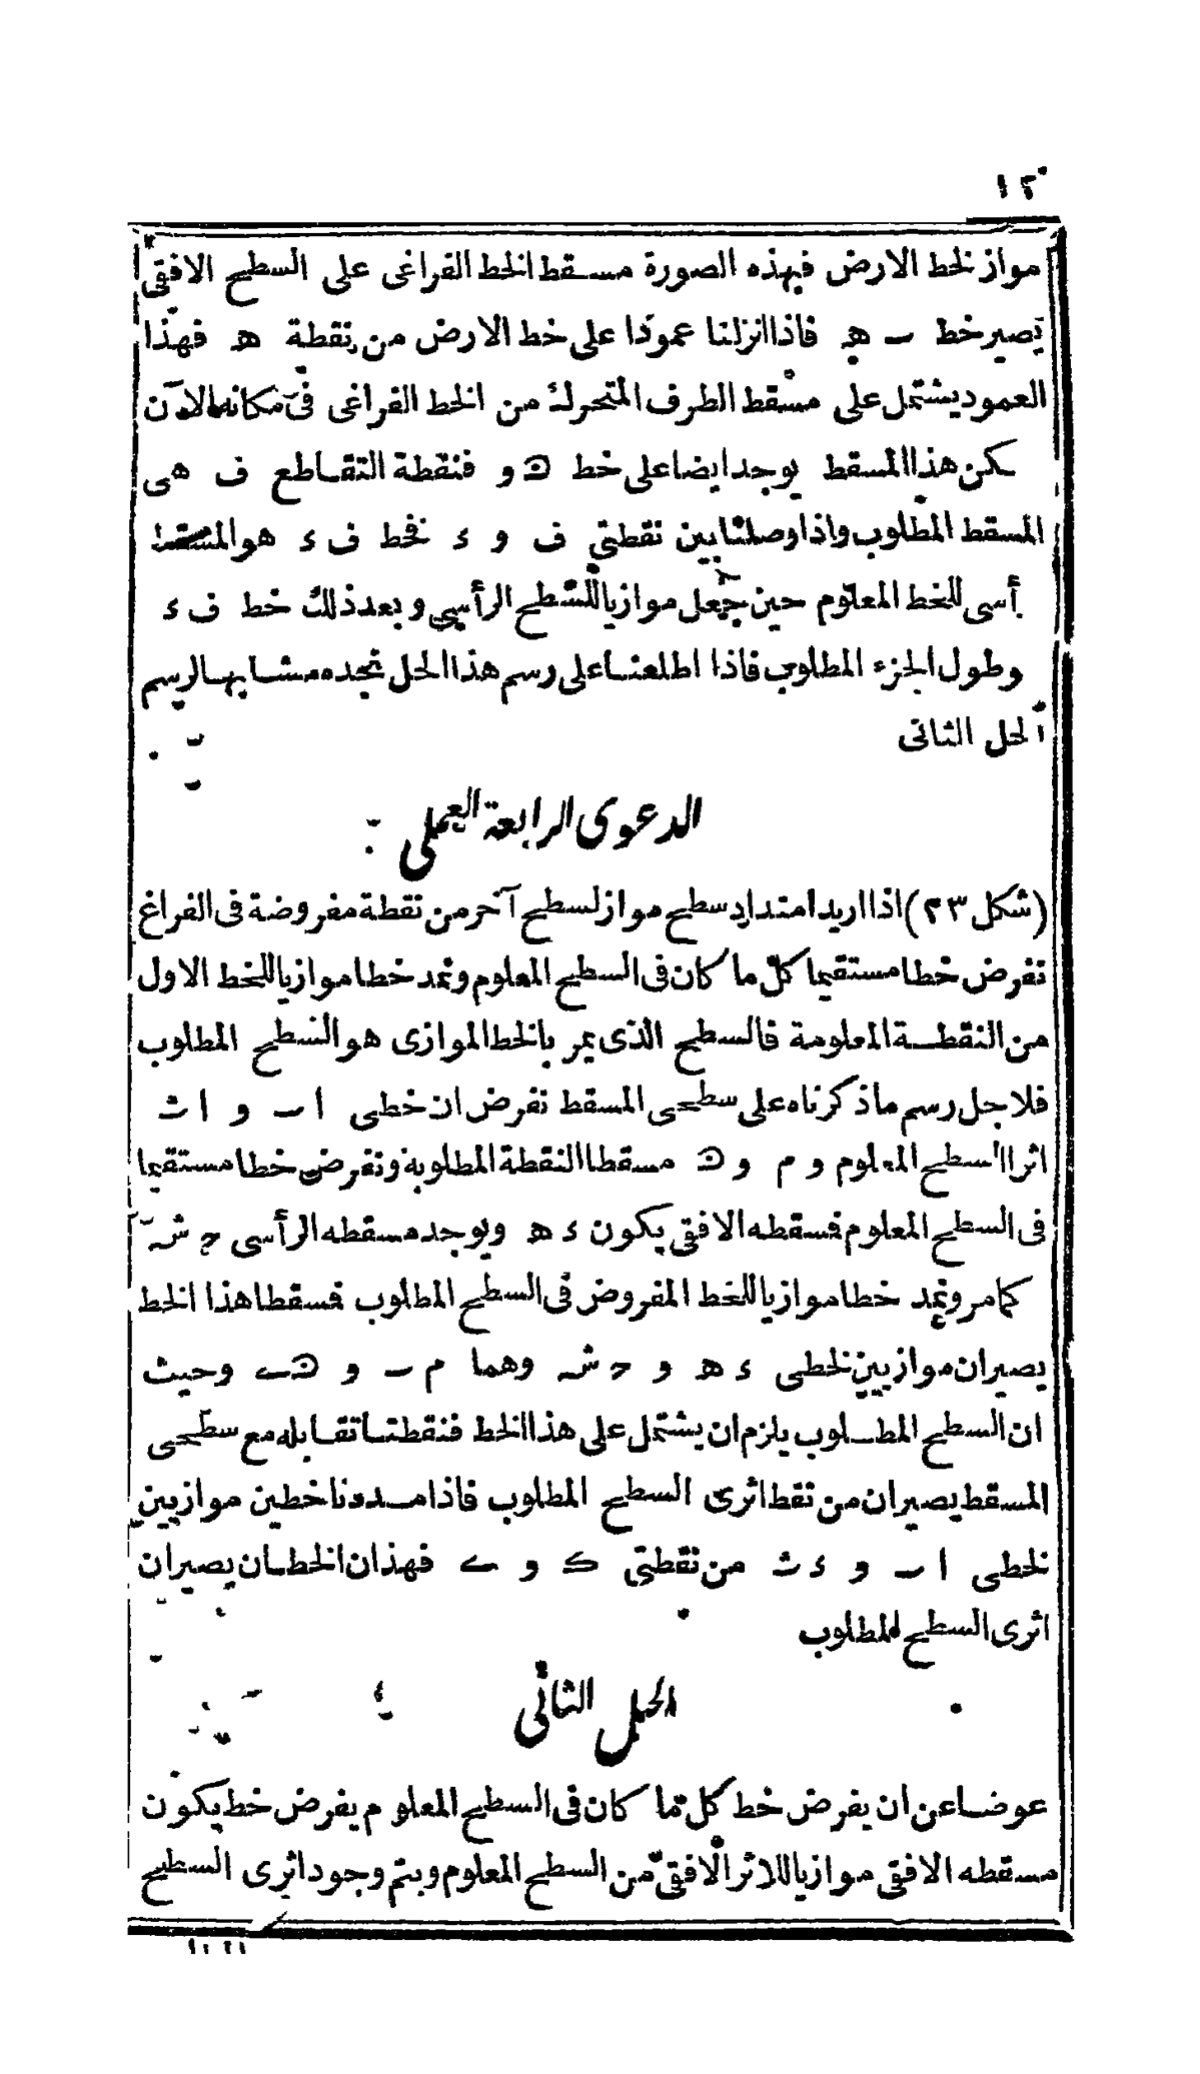 ١٢
مواز لخط الارض فبهذه الصورة مسقط الخط الفراغى على السطيح الافقى
يصير خط ٮ ه فاذا انزلنا عمودا على خط الارض من نقطة ه فهذا
العمود يشتمل على مسقط الطرف المتحرك من الخط الفراغى فى مكانه الآن
لكن هذا المسقط يوجد ايضا على خط و فنقطة التقاطع ف هى
المسقط المطلوب واذا وصلنا بين نقطتى ف و ء فخط ف ء هو المسقط
رأسى للخط المعلوم حين جعل موازيا للسطيح الرأسى وبعد ذلك خط ف ء
وطول الجزء المطلوب فاذا اطلعنا على رسم هذا الحل نجده مشابها لرسم
الحل الثانى
الدعوى الرابعة العملى
(شكل ٢٣) اذا اريد امتداد سطيح مواز لسطيح آخر من نقطة مفروضة فى الفراغ
نفرض خطا مستقيما كل ما كان فى السطيح المعلوم ونمد خطا موازيا للخط الاول
من النقطة المعلومة فالسطيح الذى يمر بالخط الموازى هو السطيح المطلوب
فلاجل رسم ما ذكرناه على سطحى المسقط نفرض ان خطى ا ٮ و ا ث
اثرا السطيح المعلوم و م و ں مسقطا النقطة المطلوبة ونفرض خطا مستقيما
فى السطيح المعلوم فسقطه الافقى يكون ء ه ويوجد مسقطه الرأسى ح ش
كما مر ونمد خطا موازيا للخط المفروض فى السطيح المطلوب فسقطا هذا الخط
يصيران موازيين لخطى ء ه و ح ش وهما م ٮ و ں ے وحيث
ان السطيح المطلوب يلزم ان يشتمل على هذا الخط فنقطتا تقابله مع سطحى
المسقط يصيران من نقط اثرى السطيح المطلوب فاذا مددنا خطين موازيين
لخطى ا ٮ و ء ث من نقطتى ك و ے فهذان الخطان يصيران
اثرى السطيح المطلوب
الحل الثانى
عوضا عن ان يفرض خط كل ما كان فى السطيح المعلوم يفرض خط يكون
مسقطه الافقى موازيا للاثر الافقى من السطيح المعلوم ويتم وجود اثرى السطيح